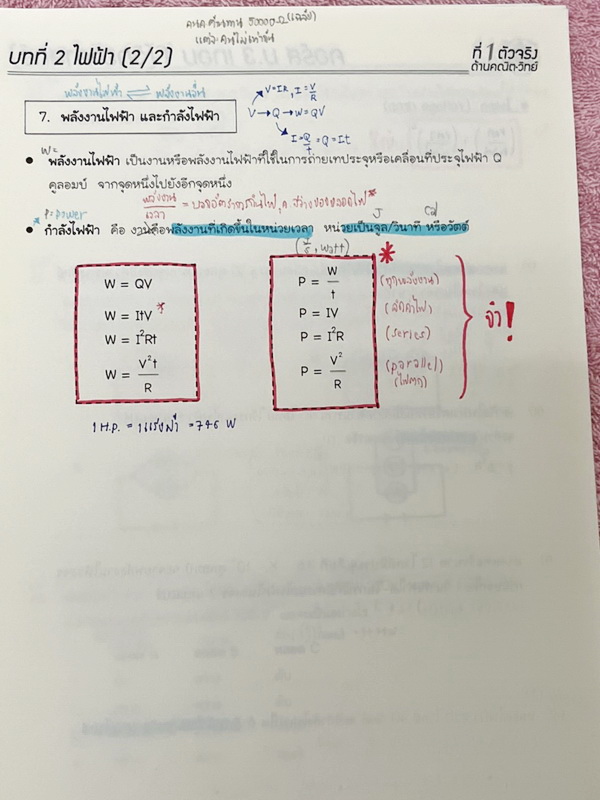 คนค ต้านทาน 5000Ω (เฉลี่ย)
แต่ละคนไม่เท่ากัน
บทที่ 2 ไฟฟ้า (2/2)
ที่ 1 ตัวจริง
ด้านคณิต-วิทย์
พลังงานไฟฟ้า ⇌ พลังงานอื่น
V=IR, I = V/R
7. พลังงานไฟฟ้า และกำลังไฟฟ้า
V → Q → W = QV
I = Q/t = Q = It
W=
• พลังงานไฟฟ้า เป็นงานหรือพลังงานไฟฟ้าที่ใช้ในการถ่ายเทประจุหรือเคลื่อนที่ประจุไฟฟ้า Q
คูลอมบ์ จากจุดหนึ่งไปยังอีกจุดหนึ่ง
พลังงาน/เวลา =
P = power
J
• กำลังไฟฟ้า คือ งานหรือพลังงานที่เกิดขึ้นในหน่วยเวลา หน่วยเป็นจูล/วินาที หรือวัตต์
(J/s, watt)
W = QV
W = ItV
W = I²Rt
W = V²t/R
P = W/t (ทุกพลังงาน)
P = IV
P = I²R (series)
P = V²/R (parallel)
(ไฟตก)
จำ!
1 H.P. = 1 แรงม้า = 746 W